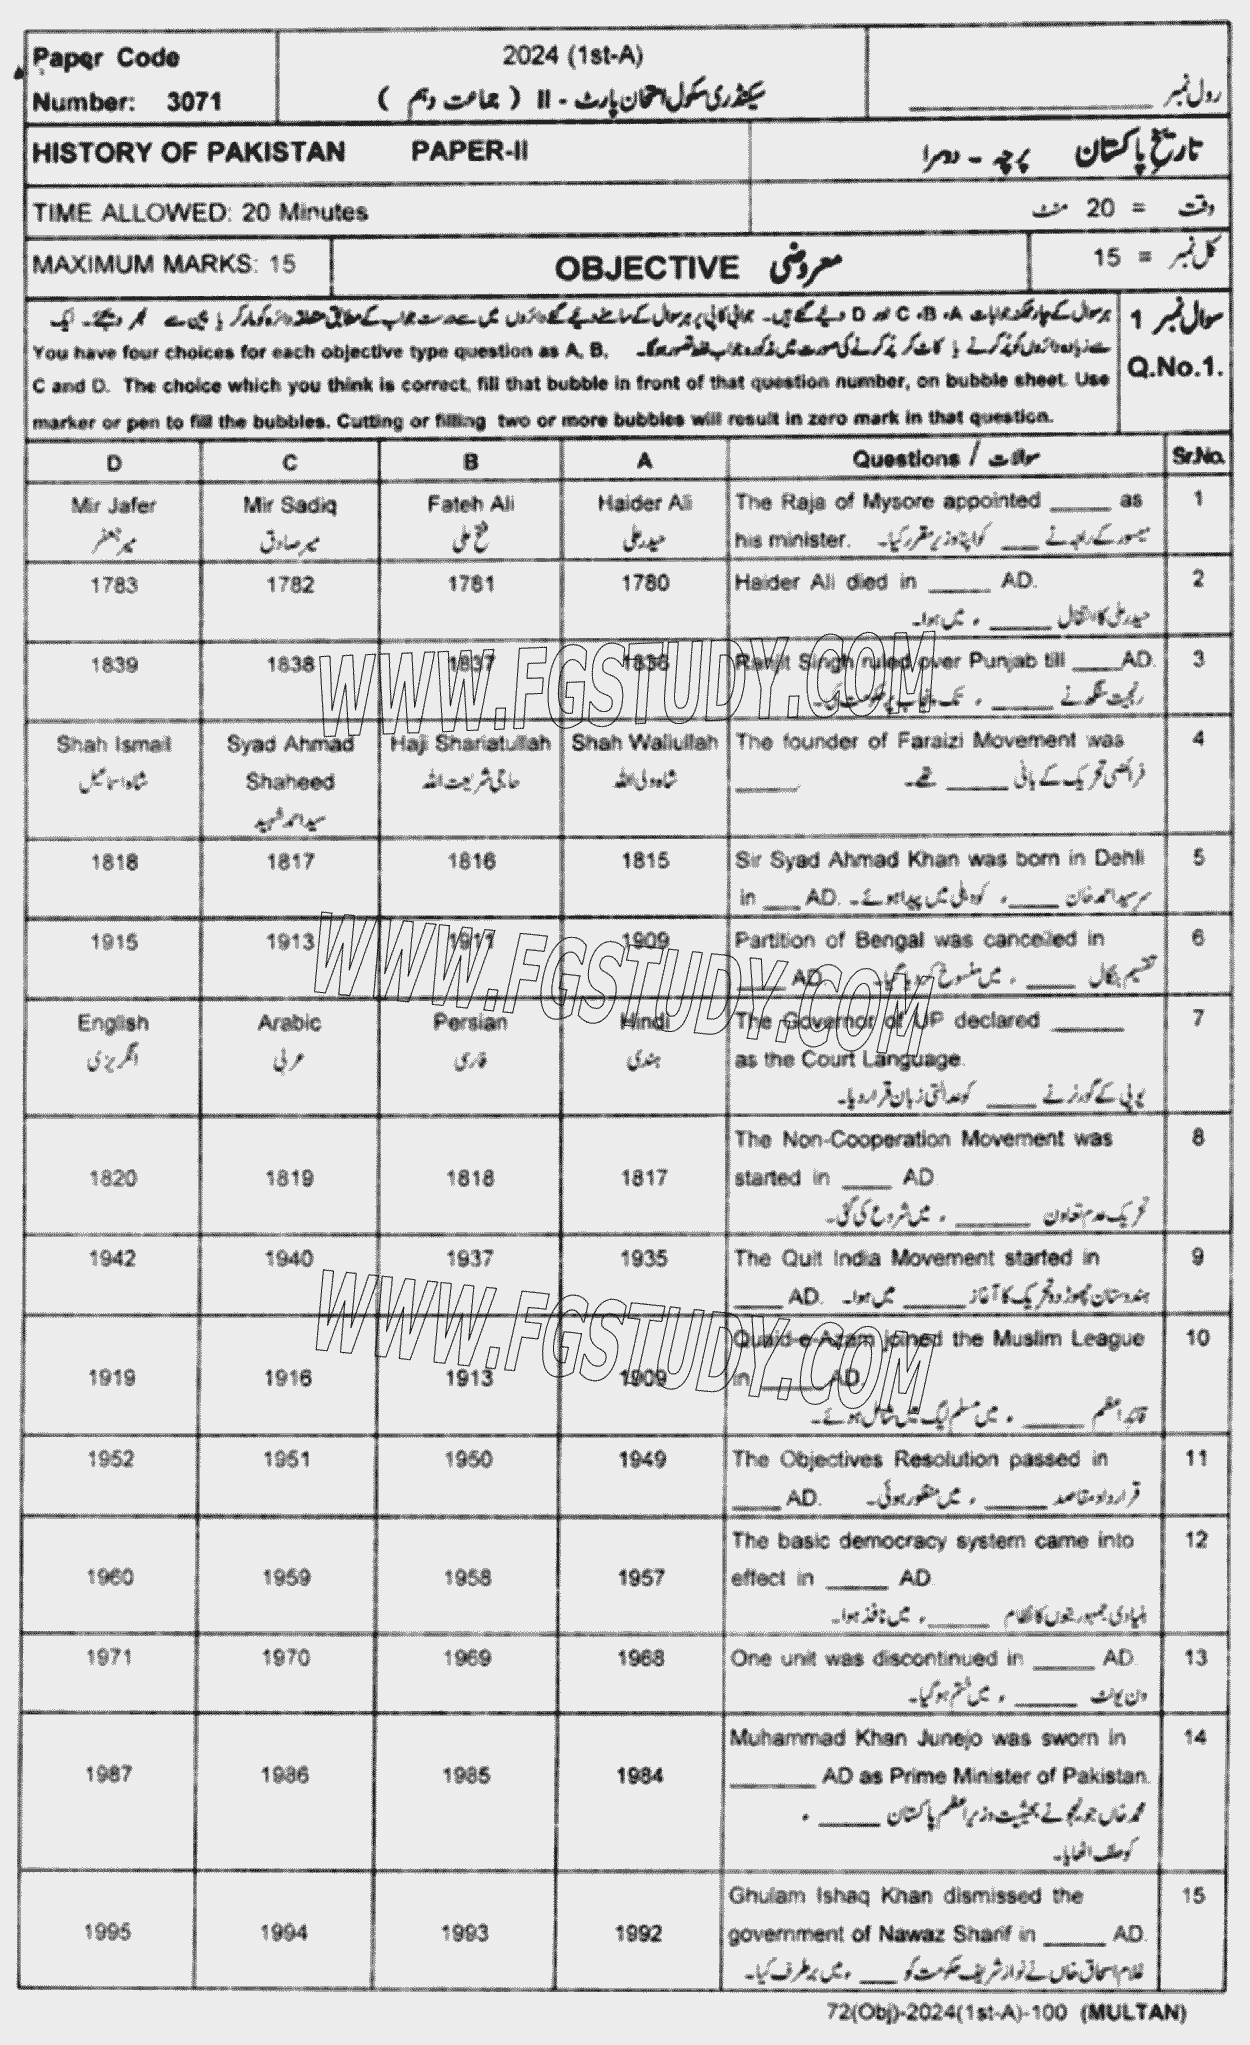 Paper Code
Number: 3071
2024 (1st-A)
سیکنڈری سکول امتحان پارٹ - II ( جماعت دہم )
رول نمبر ____________
HISTORY OF PAKISTAN PAPER-II
تاریخ پاکستان پرچہ - دوسرا
TIME ALLOWED: 20 Minutes
وقت = 20 منٹ
MAXIMUM MARKS: 15
OBJECTIVE معروضی
کل نمبر = 15
سوال نمبر 1
Q.No.1.
ہر سوال کے چار ممکنہ جوابات A، B، C اور D دیئے گئے ہیں۔ جوابی کاپی پر ہر سوال کے سامنے دیئے گئے دائروں میں سے درست جواب کے مطابق متعلقہ دائرہ کو مارکر یا پین سے بھر دیجئے۔ ایک
سے زیادہ دائروں کو پُر کرنے یا کاٹ کر پُر کرنے کی صورت میں مذکورہ جواب غلط تصور ہوگا۔ You have four choices for each objective type question as A, B,
C and D. The choice which you think is correct, fill that bubble in front of that question number, on bubble sheet. Use
marker or pen to fill the bubbles. Cutting or filling two or more bubbles will result in zero mark in that question.
D C B A Questions / سوالات Sr.No.
Mir Jafer Mir Sadiq Fateh Ali Haider Ali The Raja of Mysore appointed _____ as 1
میر جعفر میر صادق فتح علی حیدر علی his minister. میسور کے راجہ نے ___ کو اپنا وزیر مقرر کیا۔
1783 1782 1781 1780 Haider Ali died in _____ AD. 2
حیدر علی کا انتقال _____ ء میں ہوا۔
1839 1838 1837 1836 Ranjit Singh ruled over Punjab till ____AD. 3
رنجیت سنگھ نے _____ ء تک پنجاب پر حکومت کی۔
Shah Ismail Syad Ahmad Shaheed Haji Shariatullah Shah Waliullah The founder of Faraizi Movement was 4
شاہ اسماعیل سید احمد شہید حاجی شریعت اللہ شاہ ولی اللہ _____ فرائضی تحریک کے بانی _____ تھے۔
1818 1817 1816 1815 Sir Syad Ahmad Khan was born in Dehli 5
in ___ AD. سر سید احمد خان ____ء کو دہلی میں پیدا ہوئے۔
1915 1913 1911 1909 Partition of Bengal was cancelled in 6
____ AD. تقسیم بنگال ____ ء میں منسوخ کر دیا گیا۔
English Arabic Persian Hindi The Governor of UP declared ______ 7
انگریزی عربی فارسی ہندی as the Court Language.
یوپی کے گورنر نے ____ کو عدالتی زبان قرار دیا۔
The Non-Cooperation Movement was 8
1820 1819 1818 1817 started in ____ AD
تحریک عدم تعاون ______ ء میں شروع کی گئی۔
1942 1940 1937 1935 The Quit India Movement started in 9
____ AD. ہندوستان چھوڑ دو تحریک کا آغاز _____ میں ہوا۔
Quaid-e-Azam joined the Muslim League 10
1919 1916 1913 1909 in _____ AD.
قائد اعظم _____ ء میں مسلم لیگ میں شامل ہوئے۔
1952 1951 1950 1949 The Objectives Resolution passed in 11
____ AD. قرارداد مقاصد _____ ء میں منظور ہوئی۔
The basic democracy system came into 12
1960 1959 1958 1957 effect in _____ AD
بنیادی جمہوریتوں کا نظام _____ء میں نافذ ہوا۔
1971 1970 1969 1968 One unit was discontinued in _____ AD. 13
ون یونٹ _____ ء میں ختم ہو گیا۔
Muhammad Khan Junejo was sworn in 14
1987 1986 1985 1984 _______ AD as Prime Minister of Pakistan.
محمد خاں جونیجو نے بحیثیت وزیر اعظم پاکستان _____ ء
کو حلف اٹھایا۔
Ghulam Ishaq Khan dismissed the 15
1995 1994 1993 1992 government of Nawaz Sharif in _____ AD.
غلام اسحاق خاں نے نواز شریف حکومت کو ___ ء میں برطرف کیا۔
72(Obj)-2024(1st-A)-100 (MULTAN)
WWW.FGSTUDY.COM
WWW.FGSTUDY.COM
WWW.FGSTUDY.COM